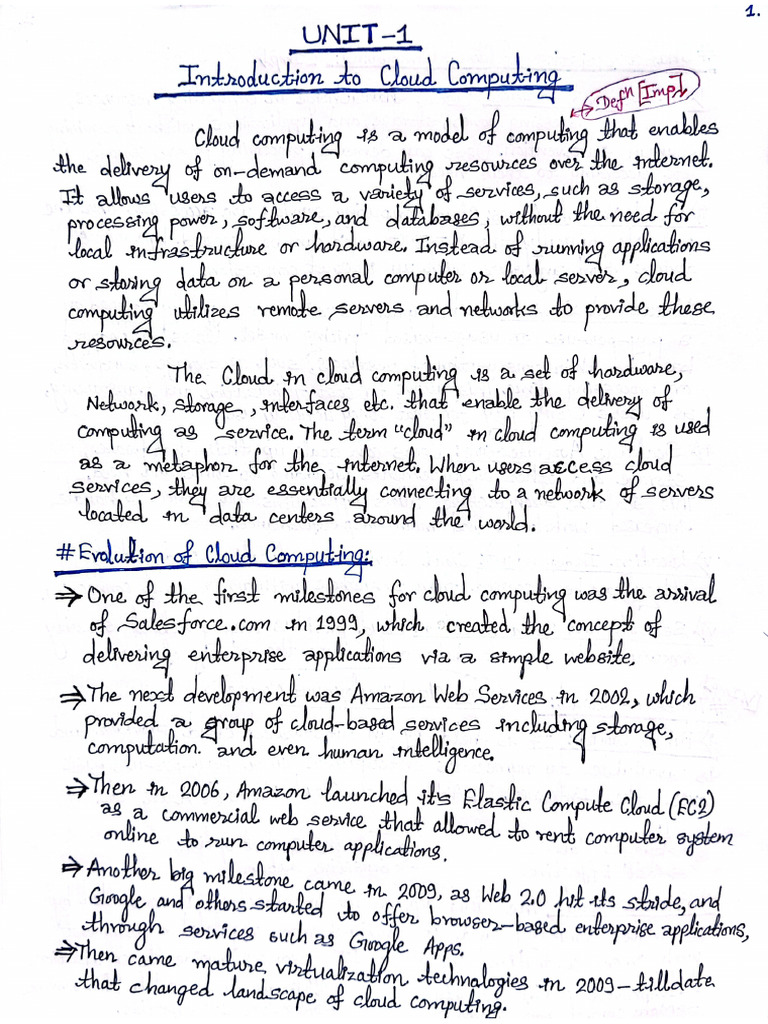 1.
UNIT-1
Introduction to Cloud Computing
Defn [Imp]
Cloud computing is a model of computing that enables
the delivery of on-demand computing resources over the internet.
It allows users to access a variety of services, such as storage,
processing power, software, and databases, without the need for
local infrastructure or hardware. Instead of running applications
or storing data on a personal computer or local server, cloud
computing utilizes remote servers and networks to provide these
resources.
The Cloud in cloud computing is a set of hardware,
Network, storage, interfaces etc. that enable the delivery of
computing as service. The term "cloud" in cloud computing is used
as a metaphor for the internet. When users access cloud
services, they are essentially connecting to a network of servers
located in data centers around the world.
# Evolution of Cloud Computing:
⇒ One of the first milestones for cloud computing was the arrival
of Salesforce.com in 1999, which created the concept of
delivering enterprise applications via a simple website.
⇒ The next development was Amazon Web Services in 2002, which
provided a group of cloud-based services including storage,
computation. and even human intelligence.
⇒ Then in 2006, Amazon launched its Elastic Compute Cloud (EC2)
as a commercial web service that allowed to rent computer system
online to run computer applications.
⇒ Another big milestone came in 2009, as Web 2.0 hit its stride, and
Google and others started to offer browser-based enterprise applications,
through services such as Google Apps.
⇒ Then came mature virtualization technologies in 2009-tilldate
that changed landscape of cloud computing.